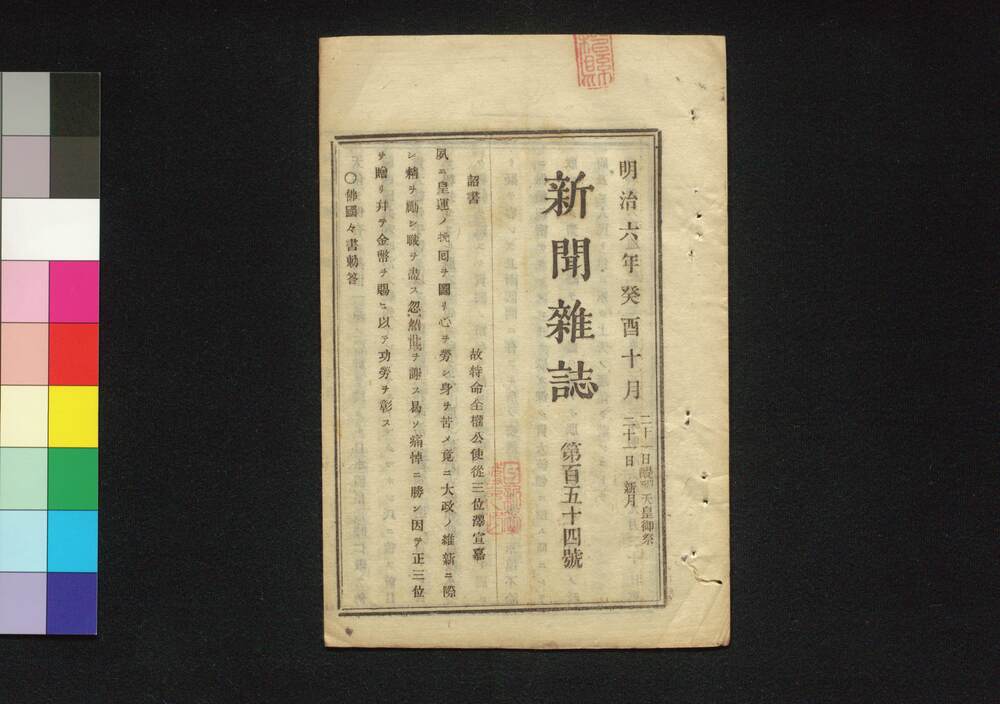 明治六年癸酉十月
二十一日 天皇御祭
二十一日 新月
新聞雜誌
第百五十四號
詔書
故特命全權公使從三位澤宣嘉
夙ニ皇運ノ挽回ヲ圖リ心ヲ勞シ身ヲ苦メ竟ニ大政ノ維新ニ際
シ精ヲ勵シ職ヲ盡ス忽然世ヲ謝ス曷ソ痛悼ニ勝ン因テ正三位
ヲ贈リ幷テ金幣ヲ賜ヒ以テ功勞ヲ彰ス
○佛國々書勅答